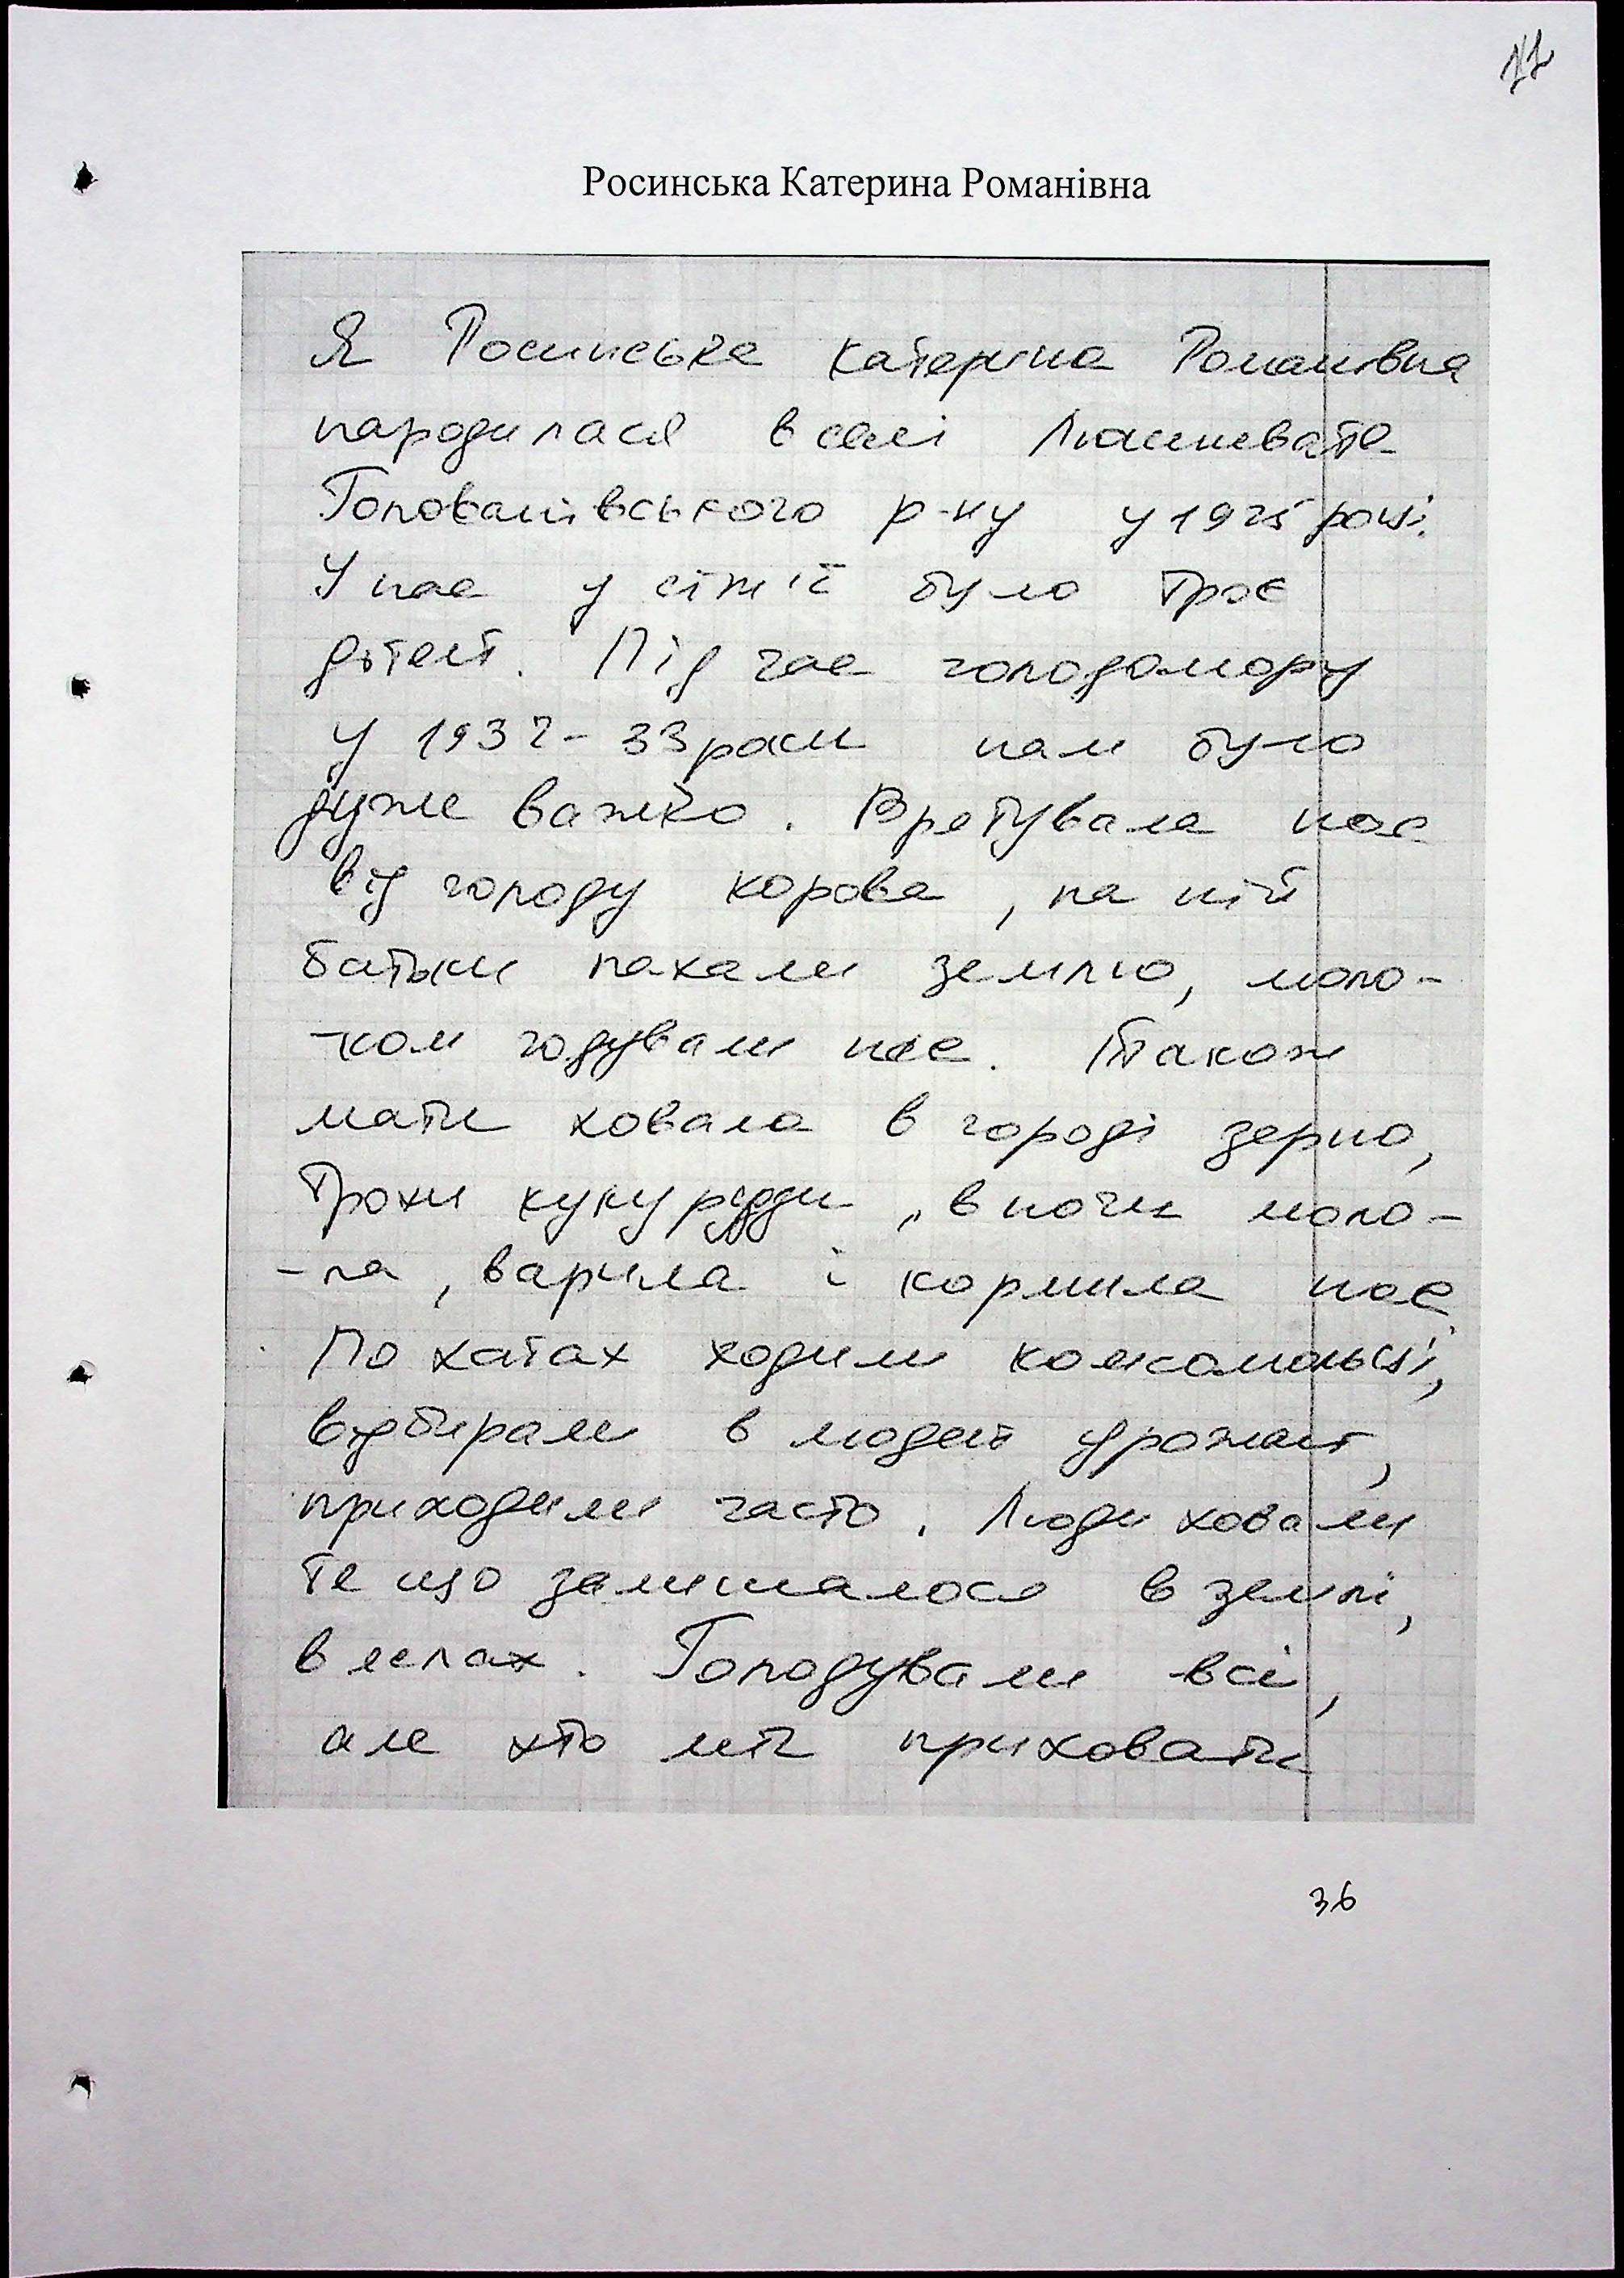 Росинська Катерина Романівна
Я Росинська Катерина Романівна
народилася в селі Люшневате
Голованівського р-ну у 1925 році.
У нас у сім'ї було троє
дітей. Під час голодомору
у 1932-33 роки нам було
дуже важко. Врятувала нас
від голоду корова, на ній
батьки пахали землю, моло-
-ком годували нас. Також
мати ховала в городі зерно,
трохи кукурудзи, вночи моло-
-ла, варила і кормила нас.
По хатах ходили комсомольці,
відбирали в людей урожай,
приходили часто. Люди ховали
те що залишалося в землі,
в ямах. Голодували всі,
але хто міг приховати
36